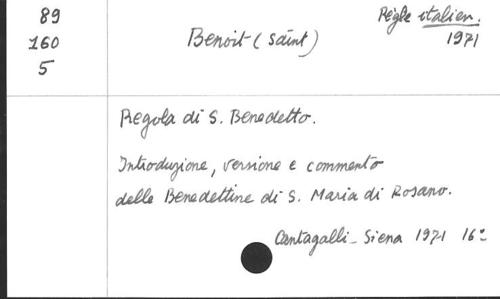 89
160
5
Benoit (saint)
Règle italien.
1971
Regola di S. Benedetto.
Introduzione, versione e commento
delle Benedettine di S. Maria di Rosano.
Cantagalli - Siena 1971 16°